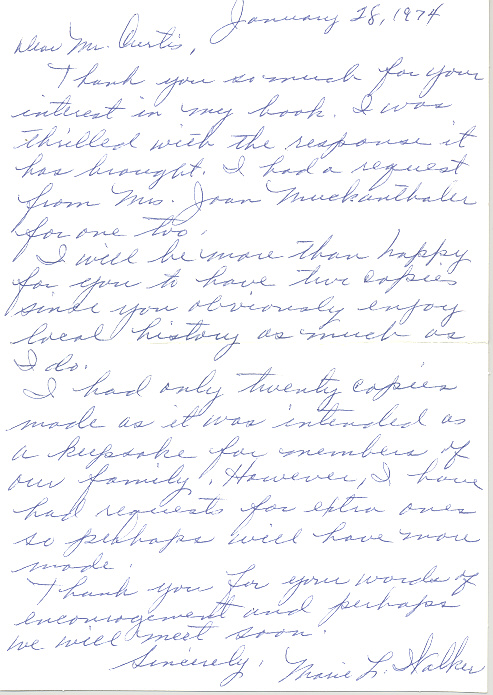 January 28, 1974
Dear Mr. Curtis,
Thank you so much for your
interest in my book. I was
thrilled with the response it
has brought. I had a request
from Mrs. Joan Muckanthaler
for one too.
I will be more than happy
for you to have two copies
since you obviously enjoy
local history as much as
I do.
I had only twenty copies
made as it was intended as
a keepsake for members of
our family. However, I have
had requests for extra ones
so perhaps will have more
made.
Thank you for your words of
encouragement and perhaps
we will meet soon.
Sincerely, Marie L. Walker